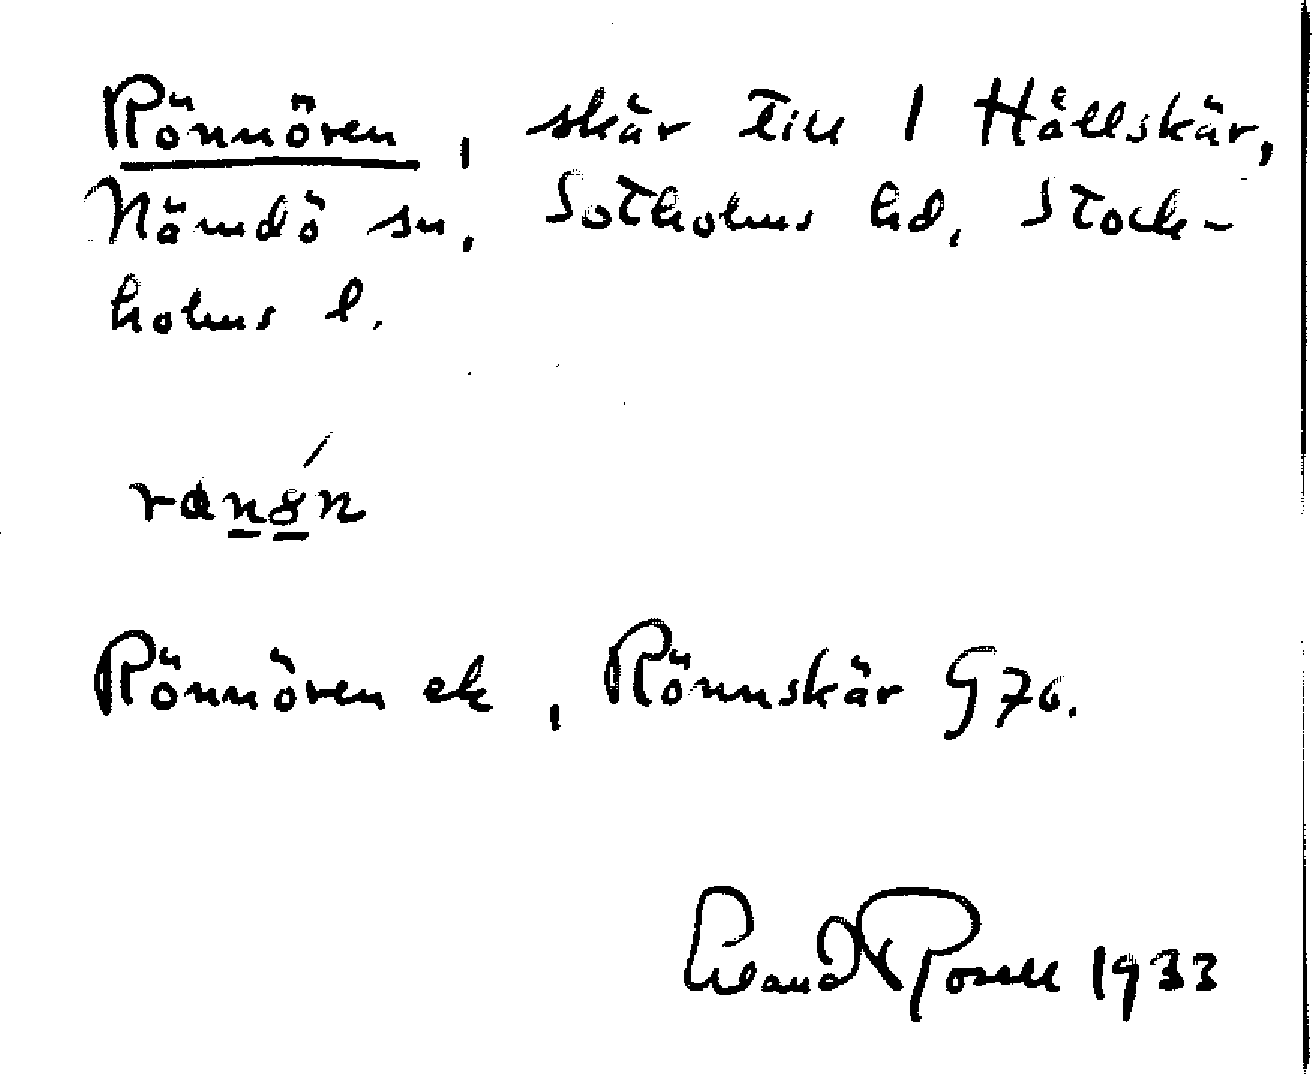 Rönnören, skär till 1 Hållskär,
Nämdö sn, Sotholms hd, Stock-
holms l.
Rönnören ek, Rönnskär G 76.
1933